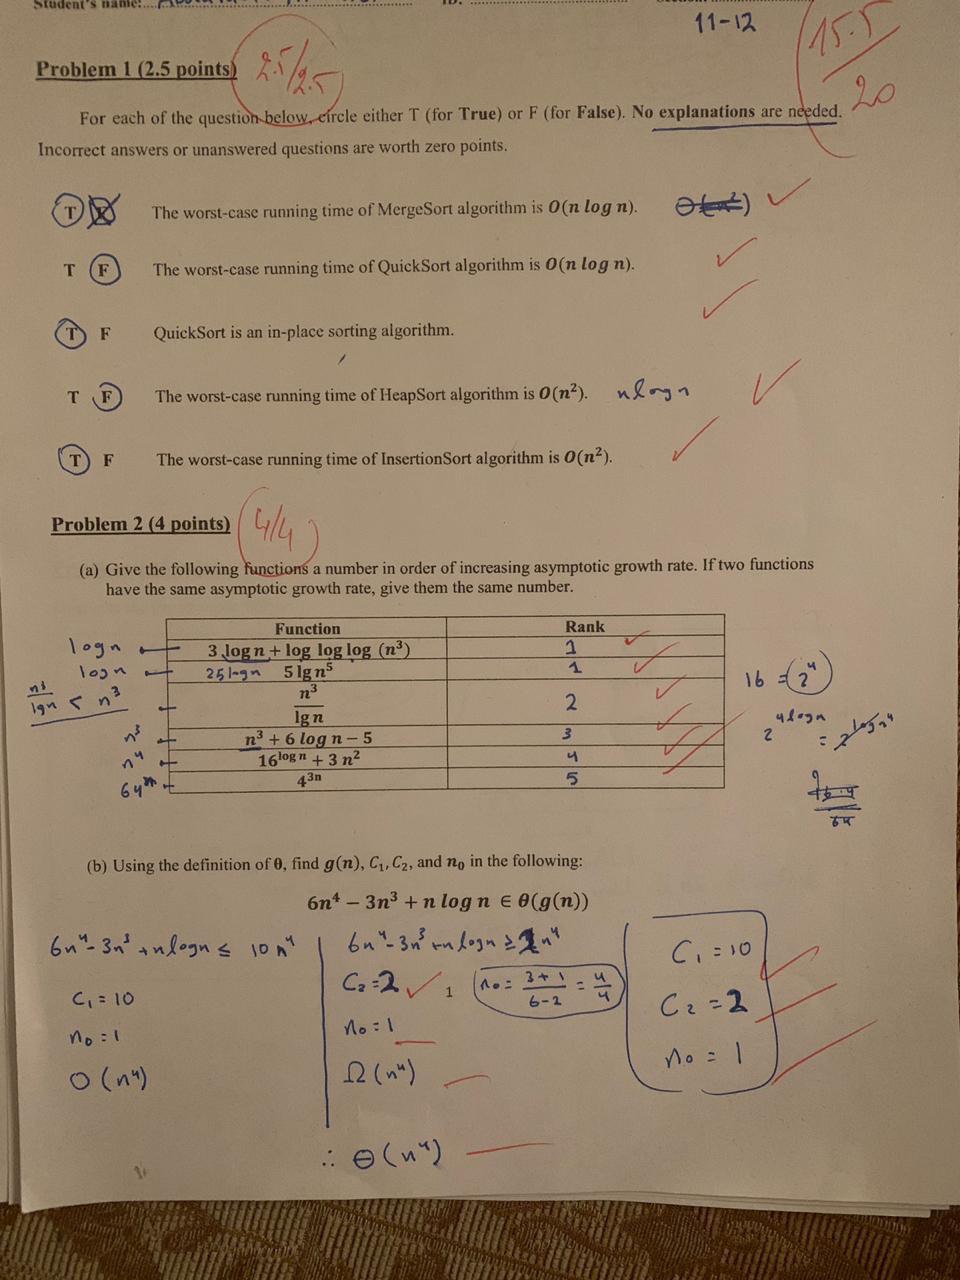 Student's name:
ID:
11-12
15.5
20
Problem 1 (2.5 points)
2.5/2.5
For each of the question below, circle either T (for True) or F (for False). No explanations are needed.
Incorrect answers or unanswered questions are worth zero points.
T F The worst-case running time of MergeSort algorithm is O(n log n). Θ(n²)
T F The worst-case running time of QuickSort algorithm is O(n log n).
T F QuickSort is an in-place sorting algorithm.
T F The worst-case running time of HeapSort algorithm is O(n²). nlogn
T F The worst-case running time of InsertionSort algorithm is O(n²).
Problem 2 (4 points)
4/4
(a) Give the following functions a number in order of increasing asymptotic growth rate. If two functions
have the same asymptotic growth rate, give them the same number.
Function Rank
logn 3 log n + log log log (n³) 1
logn 25logn 5 lg n⁵ 1
n³/lgn < n³ n³/lg n 2
n³ n³ + 6 log n – 5 3
n⁴ 16^log n + 3 n² 4
64ⁿ 4³ⁿ 5
16 = 2⁴
2^4logn = 2^logn⁴
64
(b) Using the definition of θ, find g(n), C₁, C₂, and n₀ in the following:
6n⁴ – 3n³ + n log n ∈ θ(g(n))
6n⁴-3n³+nlogn ≤ 10n⁴
C₁ = 10
n₀ = 1
O(n⁴)
6n⁴-3n³+nlogn ≥ 2n⁴
C₂ = 2
n₀ = 3+1/6-2 = 4/4
n₀ = 1
Ω(n⁴)
∴ Θ(n⁴)
C₁ = 10
C₂ = 2
n₀ = 1
1